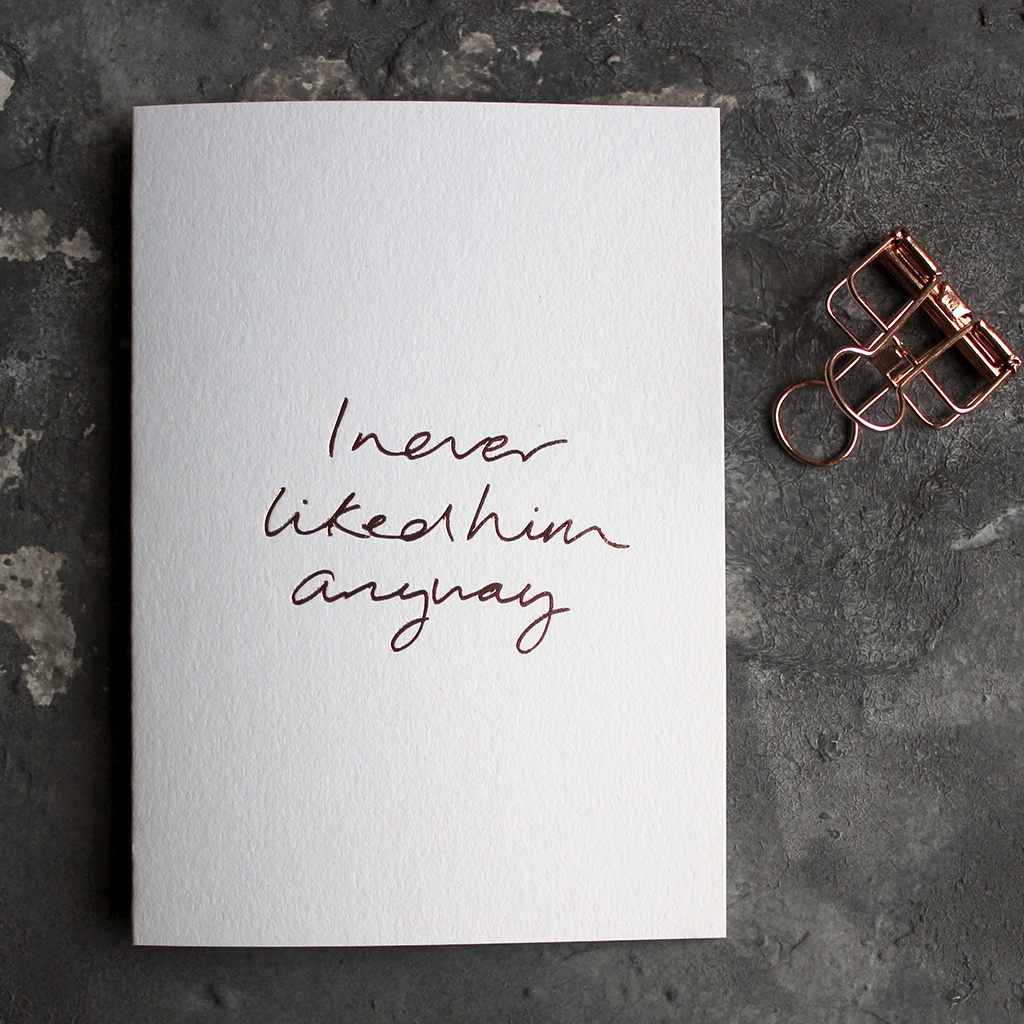 I never
liked him
anyway